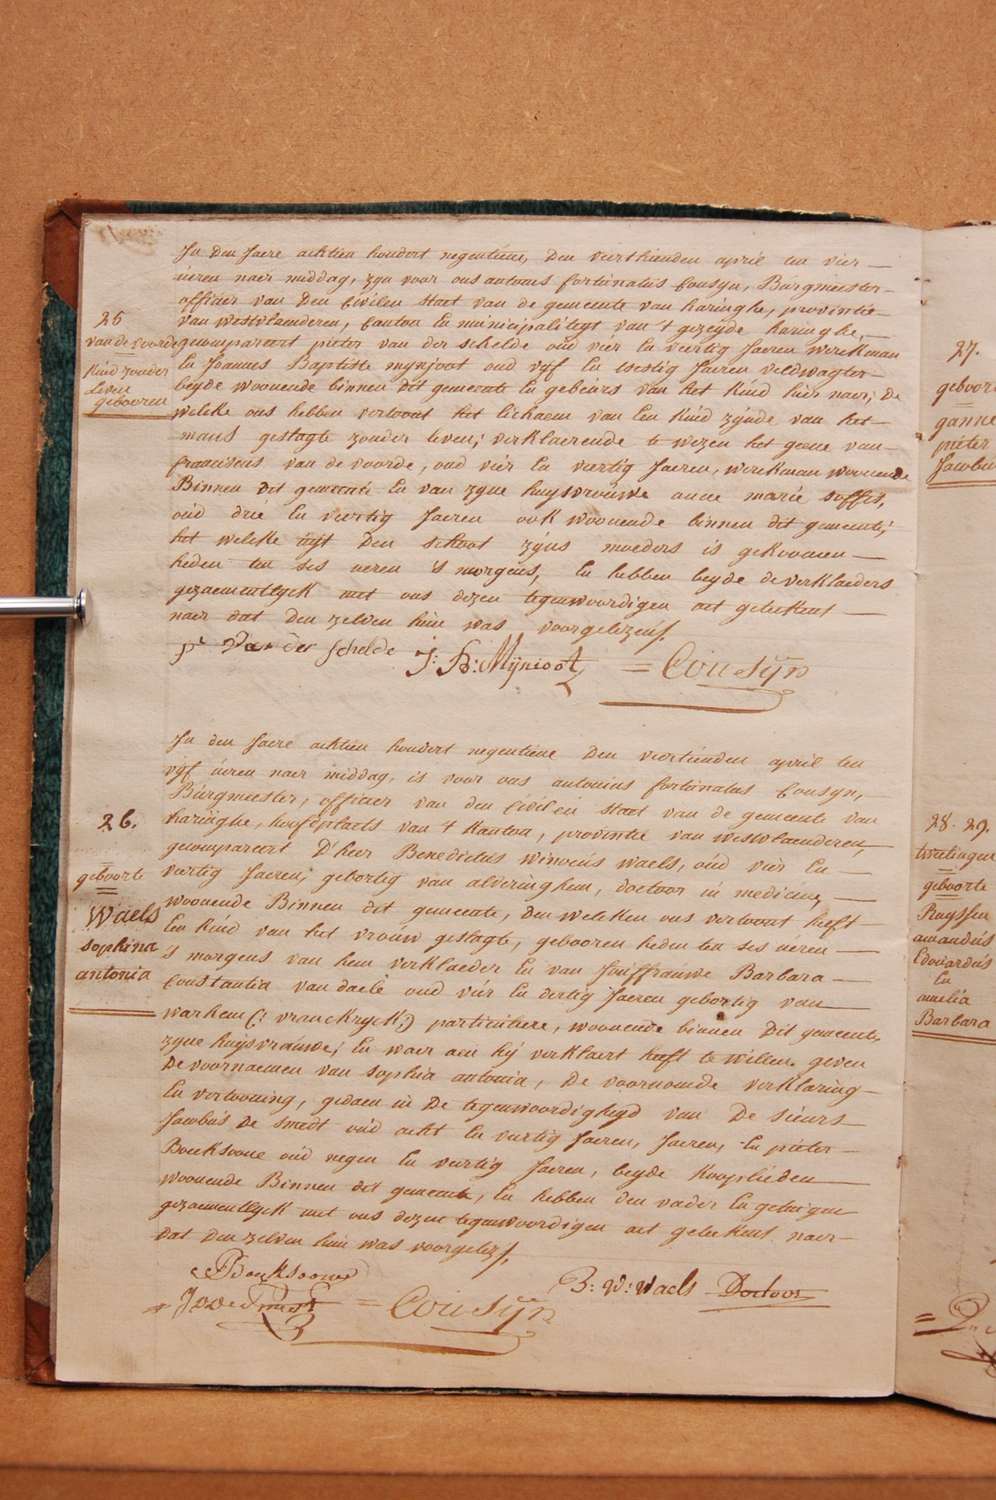 25
van de voorde
kind zonder
leven
gebooren
In den Jaere achtien hondert negentiene, den vierthienden april ten vier
ueren naer middag, zyn voor ons antonius fortunatus Cousyn, Burgmeester
officier van den Civilen staet van de gemeente van haringhe, provintie
van westvlaenderen, Canton en municipaliteyt van 't gezeyde haringhe,
gecompareert pieter van der schelde oud vier en viertig Jaeren werkman
en Joannes Baptiste mynjoot oud vyf en sestig Jaeren veldwagter
beyde woonende binnen dit gemeente en gebeurs van het kind hier naer; de
welke ons hebben vertoont het lichaem van een kind zynde van het
mans geslagte zonder leven; verklaerende te wezen het geene van
franciscus van de voorde, oud vier en viertig Jaeren, werkman woonende
Binnen dit gemeente en van zyne huysvrouwe anne marie soffis,
oud drie en viertig Jaeren ook woonende binnen dit gemeente;
het welke uyt den schoot zyns moeders is gekoomen
heden ten ses ueren 's morgens, en hebben beyde de verklaeders
gezaementlyck met ons dezen tegenwoordigen act geteekent
naer dat den zelven hun was voorgelezen
pr van der schelde J: B: Mijnioot = Cousÿn
26.
geboorte
Waels
sophina
antonia
In den Jaere achtien hondert negentiene den viertienden april ten
vyf ueren naer middag, is voor ons antonius fortunatus Cousyn,
Burgmeester, officier van den civilen staet van de gemeente van
haringhe, hoofdplaets van 't kanton, provintie van westvlaenderen,
gecompareert D'heer Benedictus winocus waels, oud vier en
viertig Jaeren, gebortig van alveringhem, doctoor in medicine,
woonende Binnen dit gemeente, den welcken ons vertoont heeft
een kind van het vrouw geslagte, gebooren heden ten ses ueren
's morgens van hem verklaeder en van Jouffrauwe Barbara
Constantia van daele oud vier en dertig Jaeren gebortig van
warhem (: vranckryck;) particuliere, woonende binnen dit gemeente
zyne huysvrauwe; en waer aen hy verklaert heeft te willen geven
de voornaemen van sophia antonia, de voornomde verklaring
en vertooning, gedaen in de tegenwoordigheyd van de sieurs
Jacobus de smedt oud acht en viertig Jaeren, Jaeren, en pieter
Boeksoone oud negen en viertig Jaeren, beyde kooplieden
woonende Binnen dit gemeente, en hebben den vader en getuigen
gezaementlyck met ons dezen tegenwoordigen act geteekent naer
dat den zelven hun was voorgelezen,
P Boeksoone
B: W: Waels Doctoor
J de Smedt = Cousÿn
27.
geboorte
ganne
pieter
Jacobus
28. 29.
twelingen
geboorte
Ruyssen
amandus
Edouardus
En
amelia
Barbara